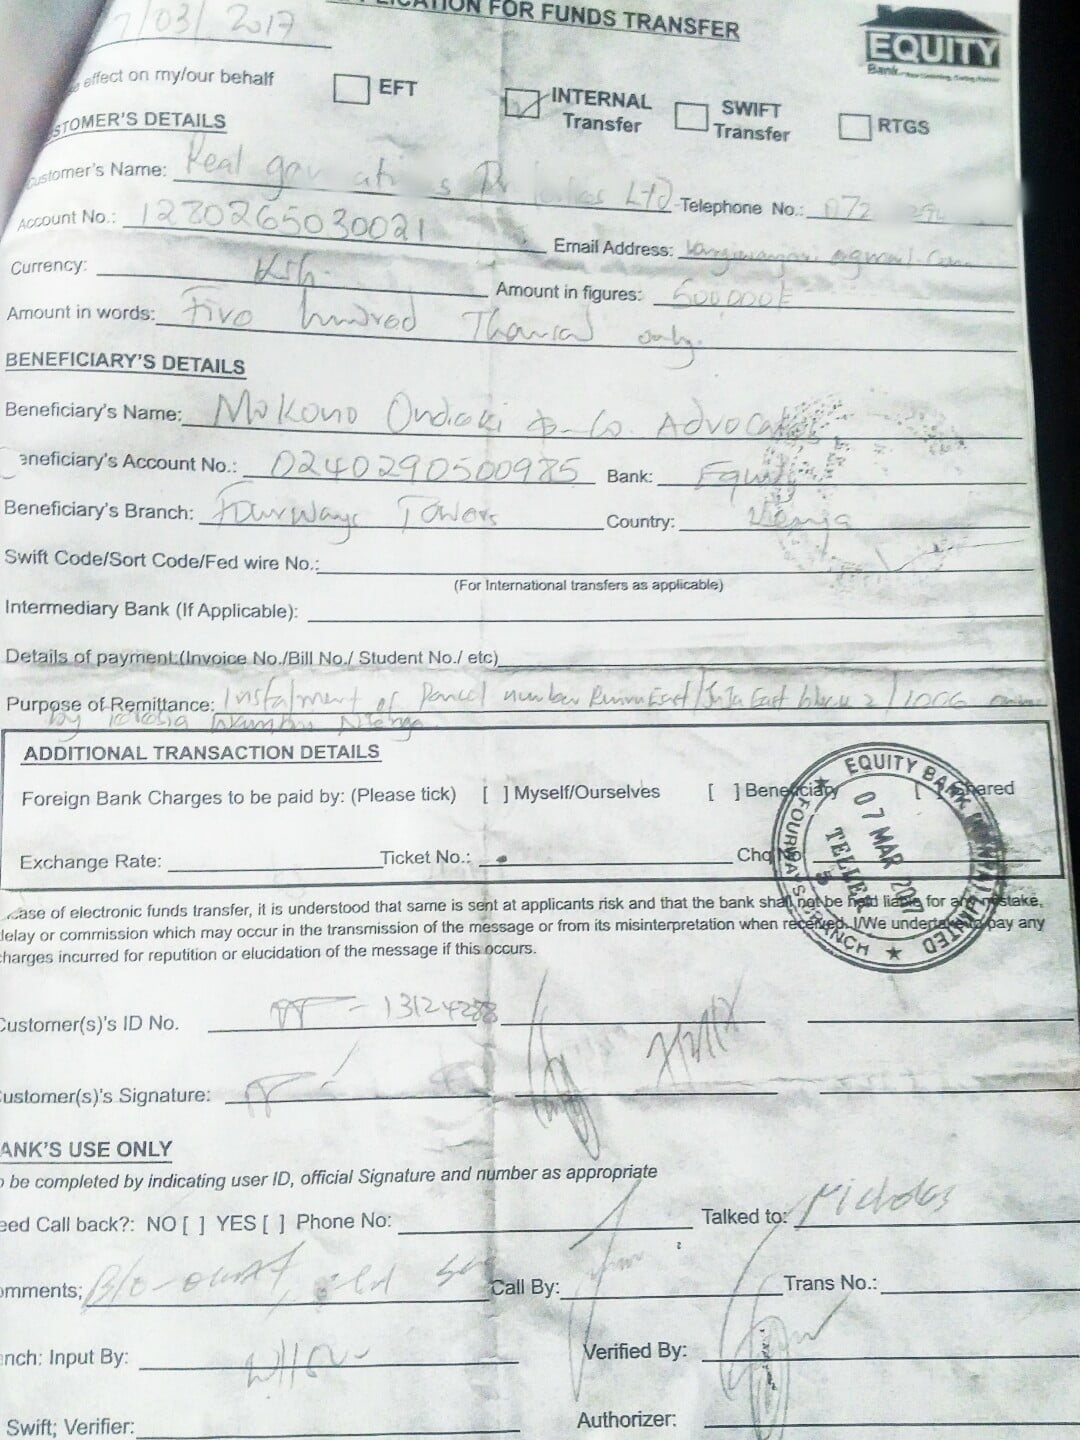 FOR FUNDS TRANSFER
7/03/2017
EQUITY
Bank
effect on my/our behalf EFT INTERNAL Transfer SWIFT Transfer RTGS
CUSTOMER'S DETAILS
Customer's Name: Real LTD Telephone No.: 072
Account No.: 1280265030021 Email Address:
Currency: Ksh. Amount in figures: 500000
Amount in words: Five hundred Thousand only.
BENEFICIARY'S DETAILS
Beneficiary's Name: Mokono Ondieki & Co. Advocates
Beneficiary's Account No.: 0240290500985 Bank: Equity
Beneficiary's Branch: Fourways Towers Country: Kenya
Swift Code/Sort Code/Fed wire No.:
(For International transfers as applicable)
Intermediary Bank (If Applicable):
Details of payment:(Invoice No./Bill No./ Student No./ etc)
Purpose of Remittance: Instalment of Parcel number Ruiru East/Juja East block 2/1066
by
ADDITIONAL TRANSACTION DETAILS
Foreign Bank Charges to be paid by: (Please tick) [ ] Myself/Ourselves [ ] Beneficiary [ ] Shared
Exchange Rate: Ticket No.: Chq No
EQUITY BANK (KENYA) LIMITED
07 MAR 2017
TELLER
5
FOURWAYS BRANCH
case of electronic funds transfer, it is understood that same is sent at applicants risk and that the bank shall not be held liable for any mistake,
delay or commission which may occur in the transmission of the message or from its misinterpretation when received. I/We undertake to pay any
charges incurred for reputition or elucidation of the message if this occurs.
Customer(s)'s ID No. 13124288
Customer(s)'s Signature:
BANK'S USE ONLY
To be completed by indicating user ID, official Signature and number as appropriate
Need Call back?: NO [ ] YES [ ] Phone No: Talked to: Nicholas
Comments; Call By: Trans No.:
Input By: Verified By:
Swift; Verifier: Authorizer: